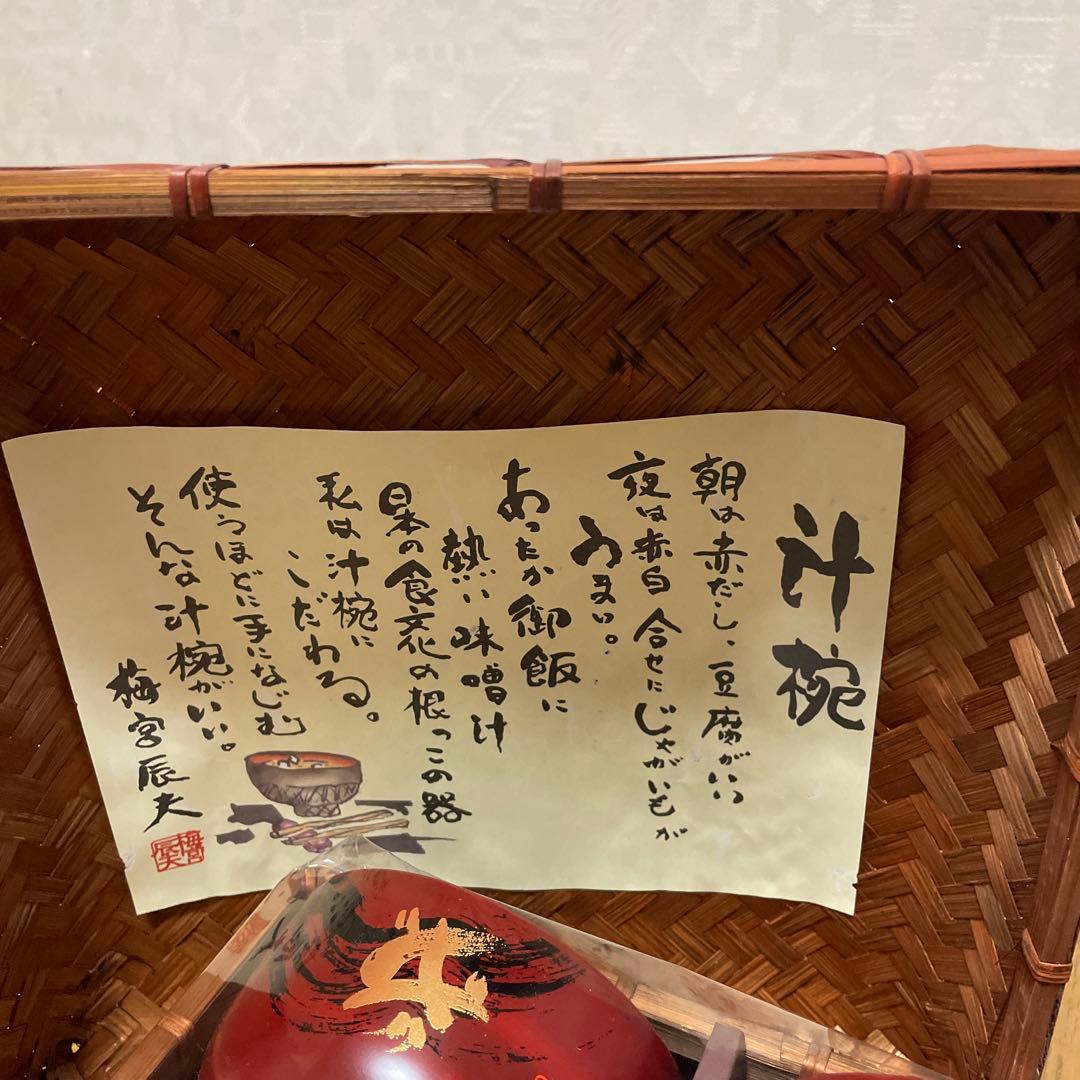 汁椀
朝は赤だし、豆腐がいい
夜は赤白合せにじゃがいもが
うまい。
あったか御飯に
熱い味噌汁
日本の食文化の根っこの器
私は汁椀に
こだわる。
使うほどに手になじむ
そんな汁椀がいい。
梅宮辰夫
梅宮
辰夫